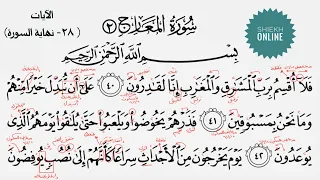 الآيات
(٢٨- نهاية السورة)
سُورَةُ المَعَارِجِ (٣)
SHIEKH
ONLINE
بِسْمِ اللَّهِ الرَّحْمَٰنِ الرَّحِيمِ
فَلَا أُقْسِمُ بِرَبِّ الْمَشَارِقِ وَالْمَغَارِبِ إِنَّا لَقَادِرُونَ ٤٠ عَلَىٰ أَن نُّبَدِّلَ خَيْرًا مِّنْهُمْ
وَمَا نَحْنُ بِمَسْبُوقِينَ ٤١ فَذَرْهُمْ يَخُوضُوا وَيَلْعَبُوا حَتَّىٰ يُلَاقُوا يَوْمَهُمُ الَّذِي
يُوعَدُونَ ٤٢ يَوْمَ يَخْرُجُونَ مِنَ الْأَجْدَاثِ سِرَاعًا كَأَنَّهُمْ إِلَىٰ نُصُبٍ يُوفِضُونَ